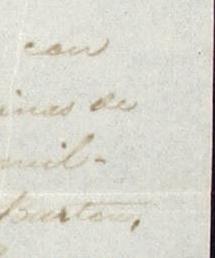 can
inas de
mil-
Burton,